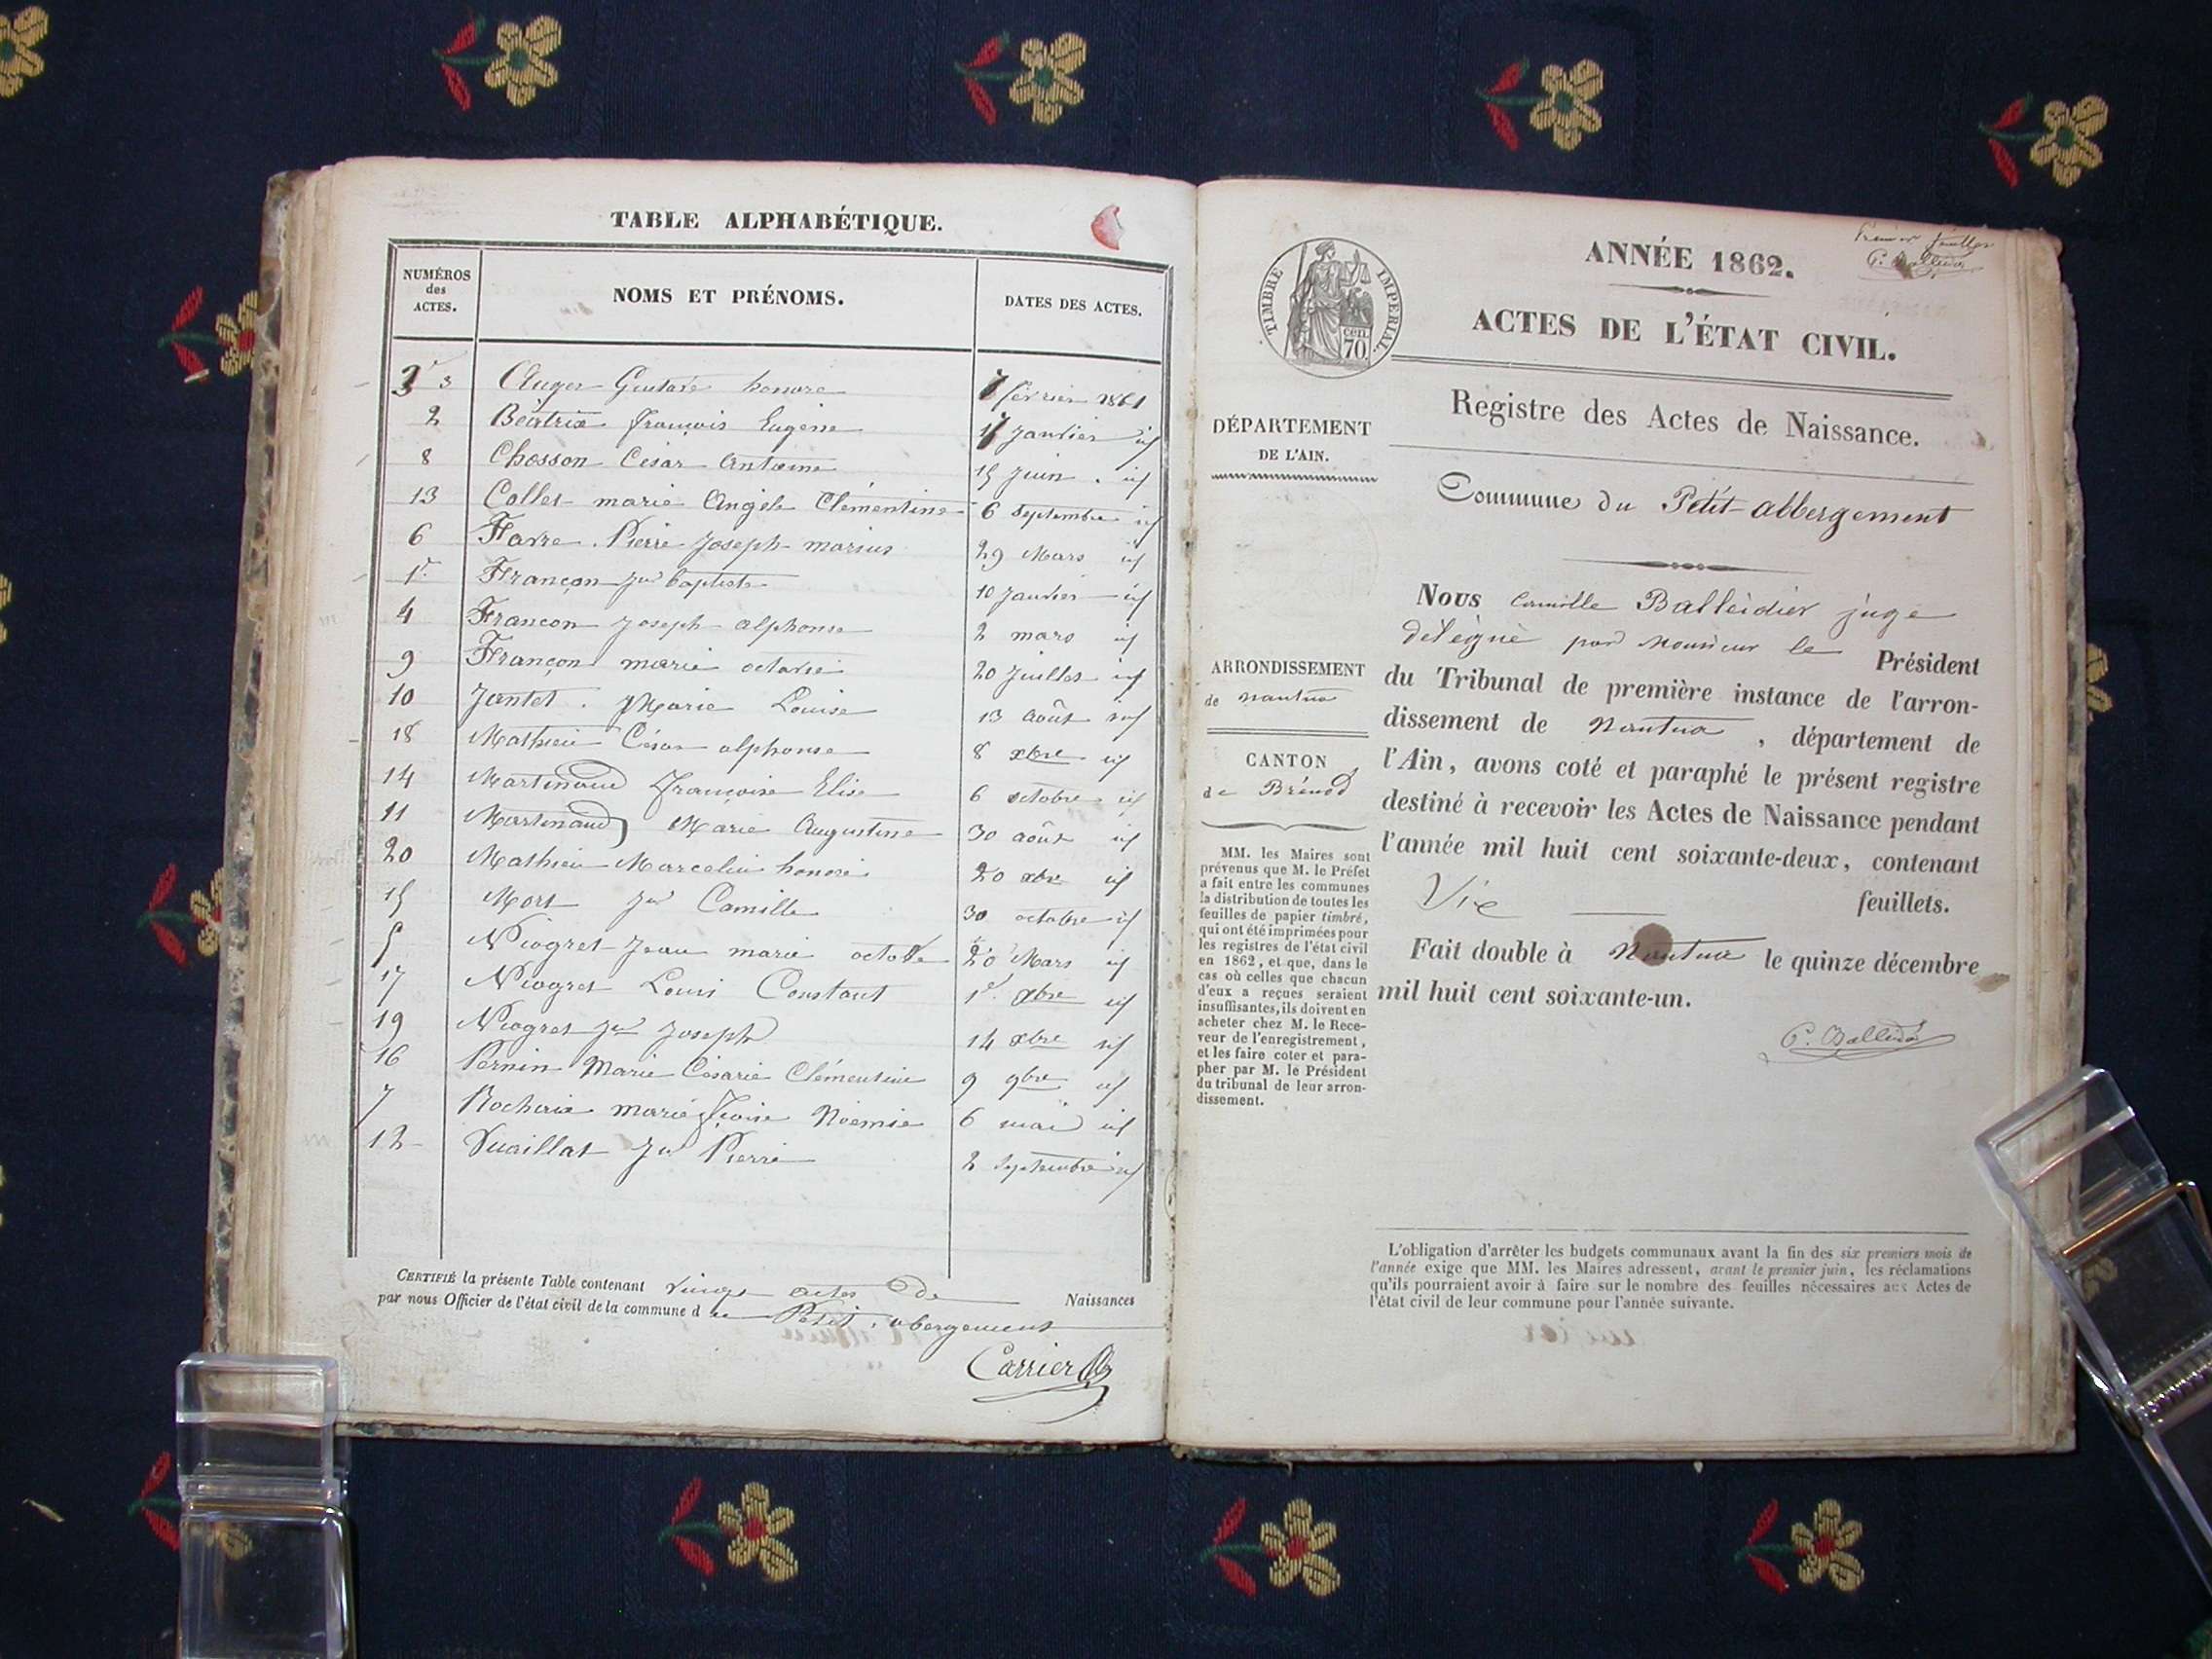 TABLE ALPHABÉTIQUE.
NUMÉROS
des
ACTES.
NOMS ET PRÉNOMS.
DATES DES ACTES.
3 Auger Gustave honoré 7 février 1861
2 Béatrix François Eugène 17 Janvier id
8 Chosson César Antoine 15 Juin id
13 Collet marie Angèle Clémentine 6 Septembre id
6 Favre Pierre Joseph marius 29 Mars id
1r Françon Jn baptiste 10 Janvier id
4 Françon Joseph alphonse 2 mars id
9 Françon marie octavie 20 Juillet id
10 Jantet Marie Louise 13 Août id
18 Mathieu César alphonse 8 xbre id
14 Martinand Françoise Elise 6 octobre id
11 Martinand Marie Augustine 30 août id
20 Mathieu Marcelin honoré 20 xbre id
15 Mort Jn Camille 30 octobre id
5 Niogret Jean marie 20 Mars id
17 Niogret Louis Constant 1er xbre id
19 Niogret Jn Joseph 14 xbre id
16 Pernin Marie Césarie Clémentine 9 9bre id
7 marie Fçoise Noémie 6 mai id
12 Vuaillat Jn Pierre 2 Septembre id
CERTIFIÉ la présente Table contenant vingt actes de Naissances
par nous Officier de l'état civil de la commune d u Petit abergement
Carrier
Premier feuillet
TIMBRE IMPERIAL.
cen.
70.
ANNÉE 1862.
ACTES DE L'ÉTAT CIVIL.
Registre des Actes de Naissance.
DÉPARTEMENT
DE L'AIN.
Commune du Petit-abbergement
ARRONDISSEMENT
de Nantua
CANTON
de Brénod
MM. les Maires sont
prévenus que M. le Préfet
a fait entre les communes
la distribution de toutes les
feuilles de papier timbré,
qui ont été imprimées pour
les registres de l'état civil
en 1862, et que, dans le
cas où celles que chacun
d'eux a reçues seraient
insuffisantes, ils doivent en
acheter chez M. le Rece-
veur de l'enregistrement,
et les faire coter et para-
pher par M. le Président
du tribunal de leur arron-
dissement.
Nous Camille Balleidier juge
délégué par Monsieur le Président
du Tribunal de première instance de l'arron-
dissement de Nantua, département de
l'Ain, avons coté et paraphé le présent registre
destiné à recevoir les Actes de Naissance pendant
l'année mil huit cent soixante-deux, contenant
feuillets.
Fait double à Nantua le quinze décembre
mil huit cent soixante-un.
L'obligation d'arrêter les budgets communaux avant la fin des six premiers mois de
l'année exige que MM. les Maires adressent, avant le premier juin, les réclamations
qu'ils pourraient avoir à faire sur le nombre des feuilles nécessaires aux Actes de
l'état civil de leur commune pour l'année suivante.